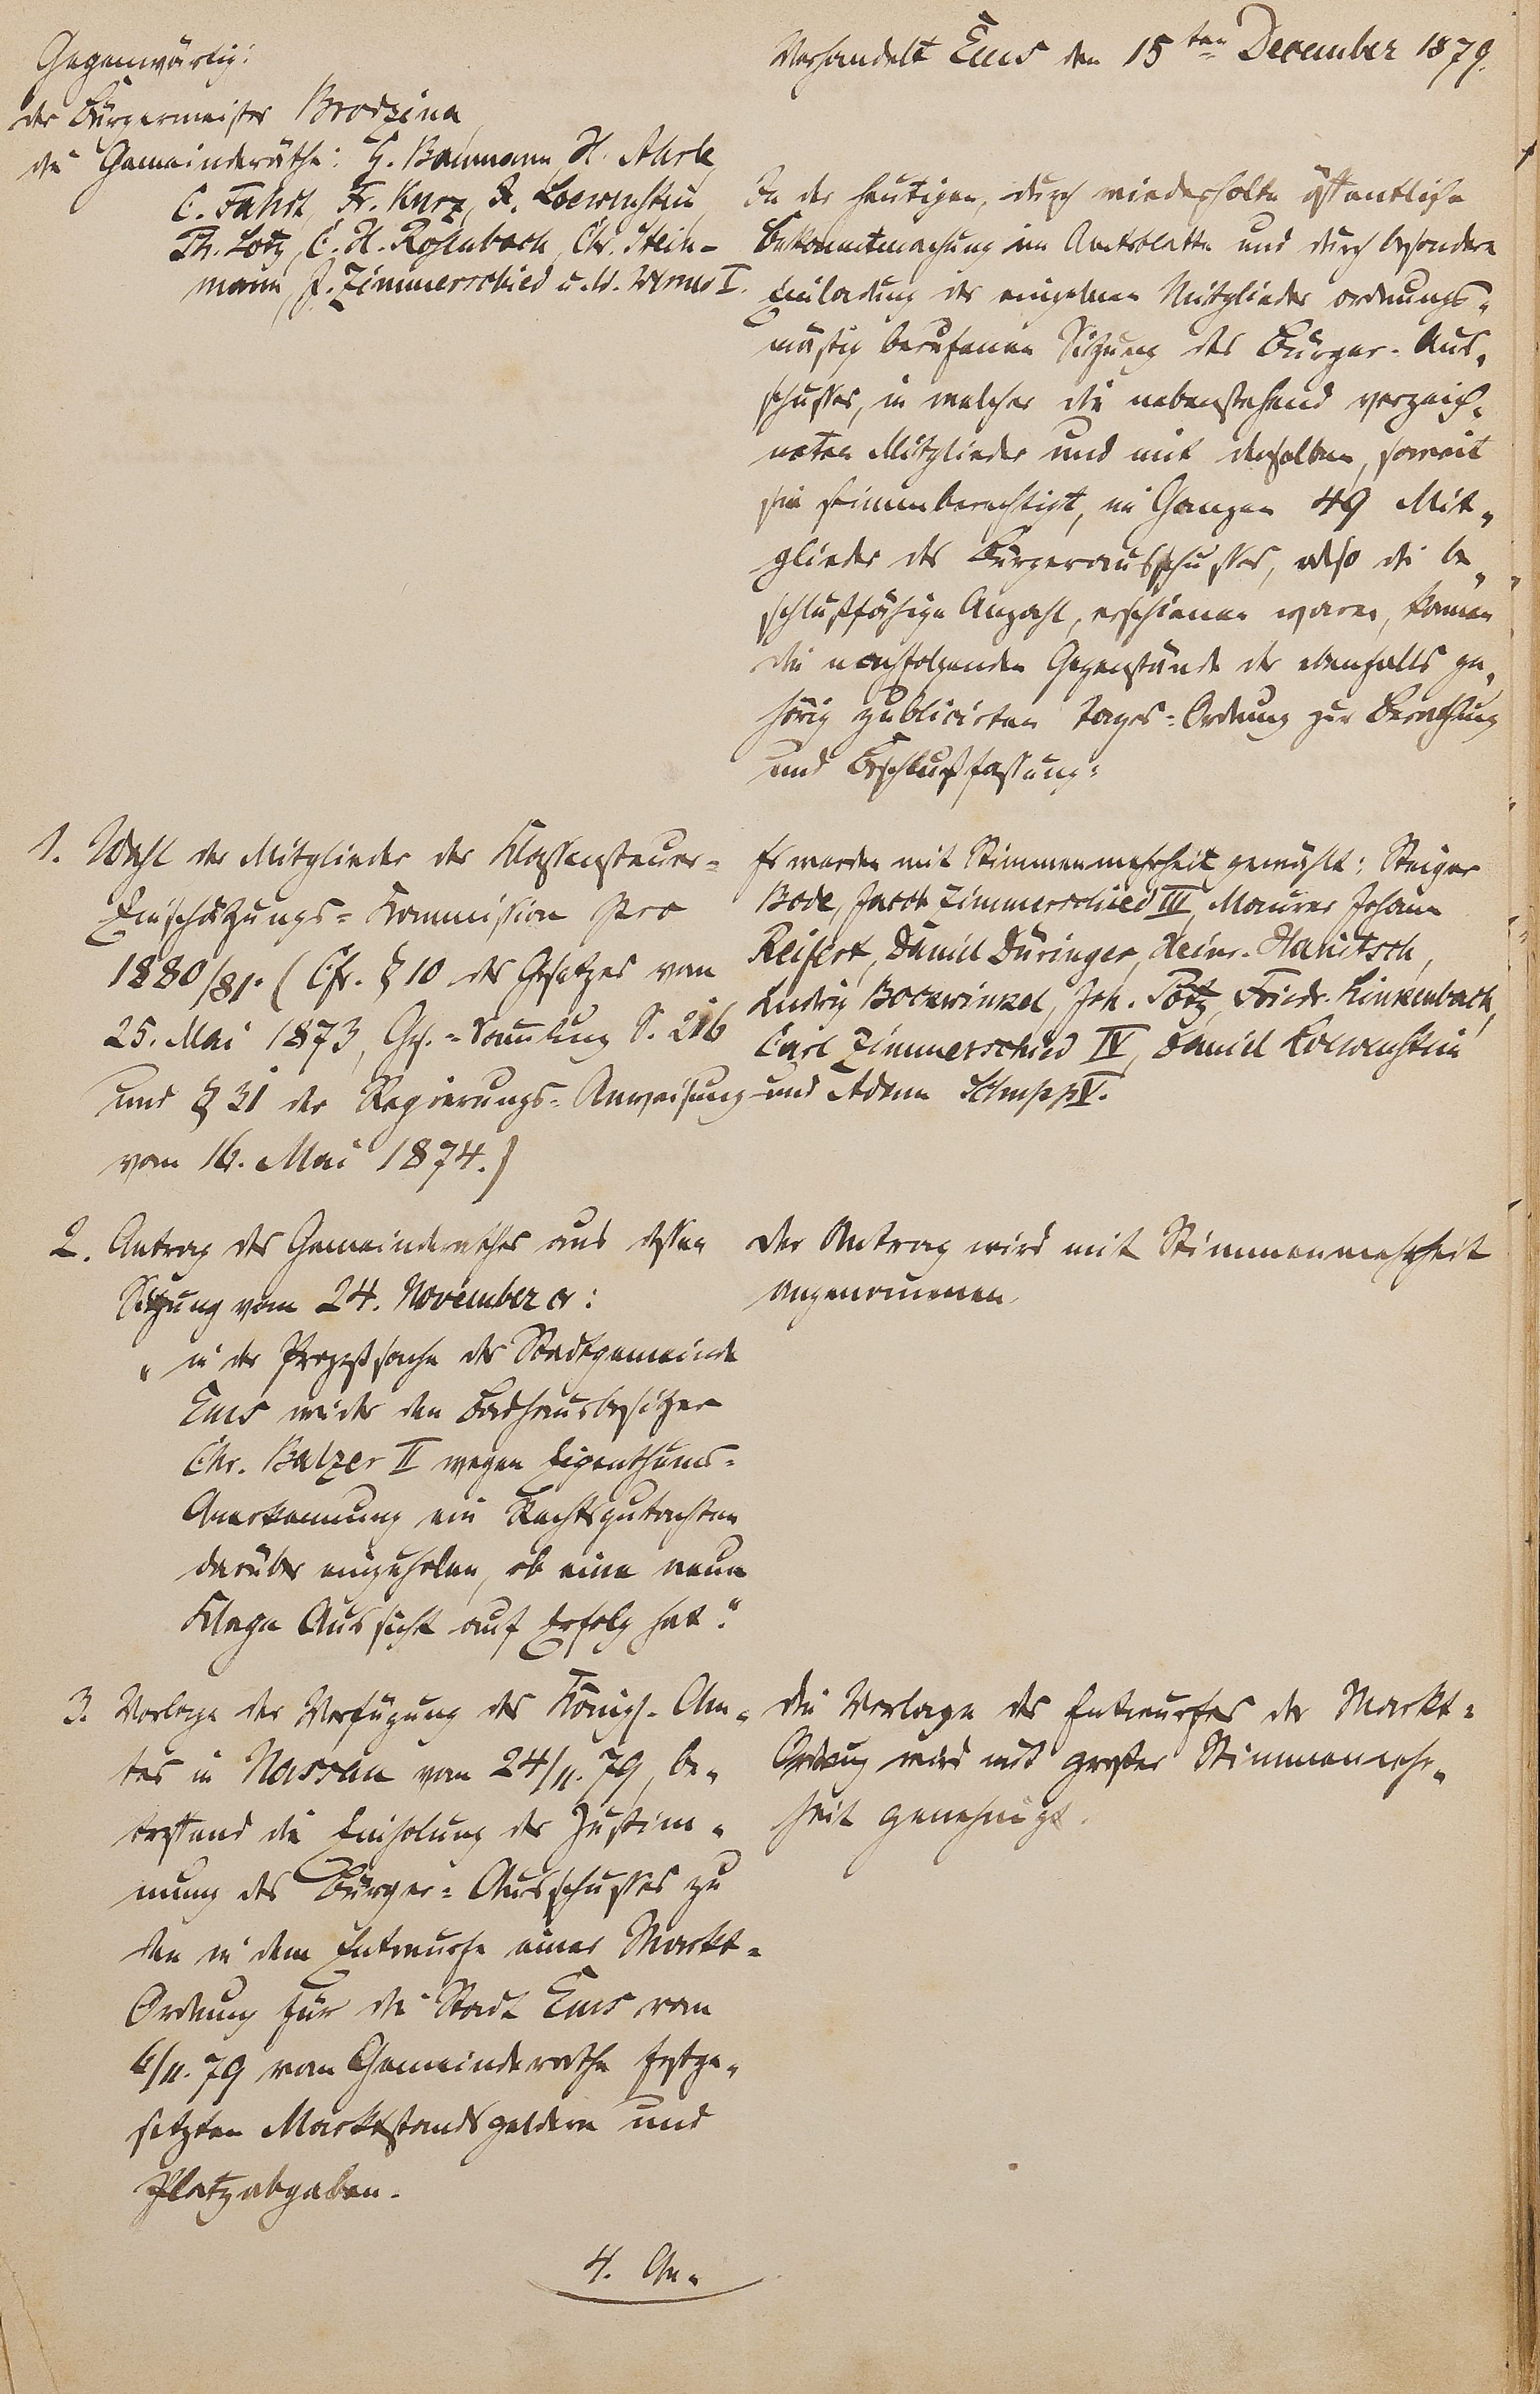 Gegenwärtig:
der Bürgermeister Brodzina
die Gemeinderäthe: G. Baumann, H. Ahrle,
C. Fahdt, Fr. Kurz, A. Loewenstein,
Th. Lotz, C. H. Rosenbach, Chr. Stein-
mann, J. Zimmerschied u. W. I.
Verhandelt Ems den 15ten December 1879.
In der heutigen, durch wiederholte öffentliche
Bekanntmachung im Amtsblatte und durch besondere
Einladung der einzelnen Mitglieder ordnungs-
mäßig berufenen Sitzung des Bürger-Aus-
schusses, in welcher die nebenstehend verzeich-
neten Mitglieder und mit denselben, soweit
sie stimmberechtigt, im Ganzen 49 Mit-
glieder des Bürgerausschusses, also die be-
schlußfähige Anzahl, erschienen waren, kamen
die nachfolgenden Gegenstände der ebenfalls ge-
hörig publicirten Tages-Ordnung zur Berathung
und Beschlußfassung:
1. Wahl der Mitglieder der Klassensteuer-
Einschätzungs-Kommission pro
1880/81. (Cfr. § 10 des Gesetzes vom
25. Mai 1873, Ges.-Samlung S. 216
und § 31 der Regierungs-Anweisung
vom 16. Mai 1874.)
Es werden mit Stimmenmehrheit gewählt: Steiger
Bode, Jacob Zimmerschied III, Maurer Johann
Reifert, Daniel Düringer, Heinr. Hanitsch,
Ludwig Bockwinkel, Joh. Potz, Friedr. Linkenbach,
Carl Zimmerschied IV, Daniel Loewenstein
und Adam Schupp V.
2. Antrag des Gemeinderathes aus dessen
Sitzung vom 24. November cr:
"in der Prozeßsache der Stadtgemeinde
Ems wider den Badhausbesitzer
Chr. Balzer II wegen Eigenthums-
Anerkennung ein Rechtsgutachten
darüber einzuholen, ob eine neue
Klage Aussicht auf Erfolg hat."
Der Antrag wird mit Stimmenmehrheit
angenommen.
3. Vorlage der Verfügung des Königl. Am-
tes in Nassau vom 24/11. 79, be-
treffend die Einholung der Zustim-
mung des Bürger-Ausschusses zu
den in dem Entwurfe einer Markt-
Ordnung für die Stadt Ems vom
6/11. 79 vom Gemeinderathe festge-
setzten Marktstandsgeldern und
Platzabgaben.
Die Vorlage des Entwurfes der Markt-
Ordnung wird mit großer Stimmenmehr-
heit genehmigt.
4. An-